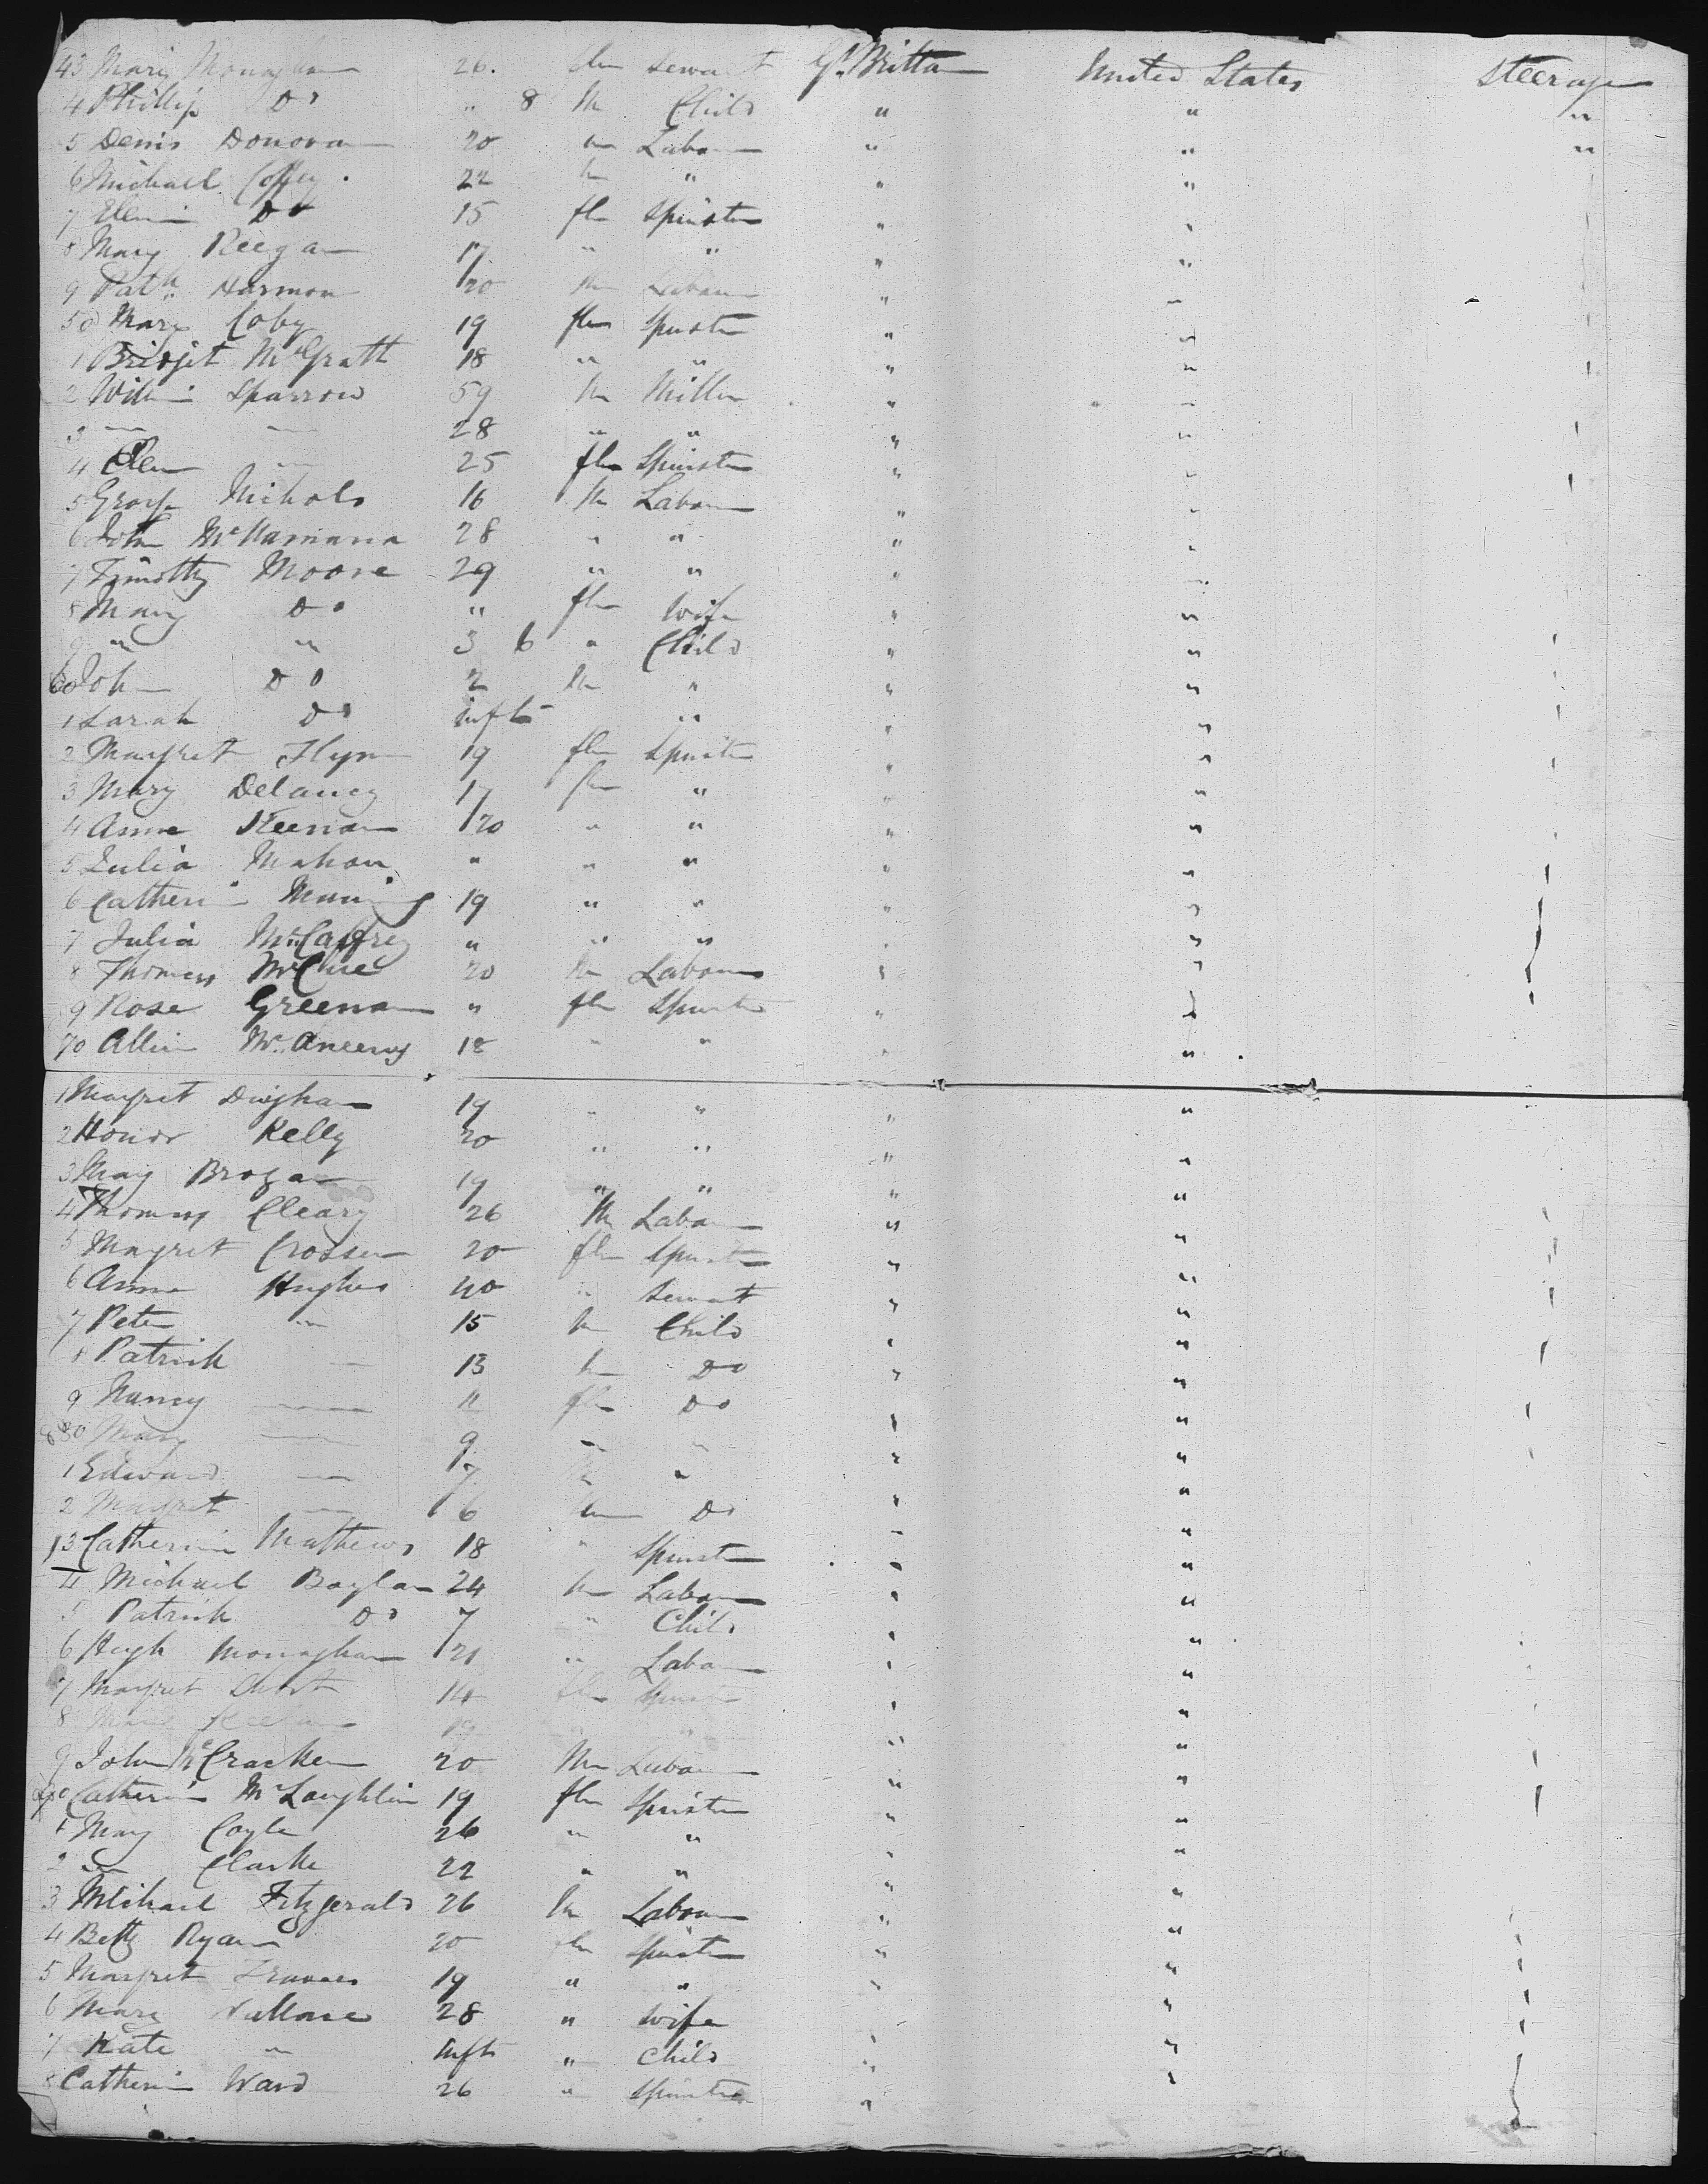 43 Mary Monaghan 26. fm Servant Gt. Brittan United States Steerage
4 Phillip Do " 8 M Child " " "
5 Denis Donovan 20 m Labour " " "
6 Michael Coffey. 22 M " " "
7 Ellen Do 15 fm Spinster " "
8 Mary Reegan 17 " " " "
9 Patk Harmon 20 M Labour " "
50 Mary Coby 19 fm Spinster " "
1 Bridjet McGratt 18 " " " "
2 Willm Sparrow 59 M Miller " "
3 — — 28 " " " "
4 Ellen — 25 fm Spinster " "
5 Gorge Nichols 16 M Labour " "
6 John McNamara 28 " " " "
7 Timothy Moore 29 " " " "
8 Mary Do " fm Wife " "
9 " " 3 6 " Child " "
60 John Do 2 M " " "
1 Sarah Do infts " " "
2 Margret Flynn 19 fm Spinster " "
3 Mary Delaney 17 fm " " "
4 Anne Keenan 20 " " " "
5 Julia Mahon " " " " "
6 Catherin Maning 19 " " " "
7 Julia McCaffrey " " " " "
8 Thomas McClue 20 M Labour " "
9 Rose Greenan " fm Spinster " "
70 McAneeny 18 " " " "
1 Margret 19 " " " "
2 Honor Kelly 20 " " " "
3 Mary Brogan 19 " " " "
4 Thomas Cleary 26 M Labour " "
5 Margret Crossen 20 fm Spinster " "
6 Anne Hughes 40 " Servant " "
7 Peter " 15 M Child " "
8 Patrick — 13 M Do " "
9 Nancy — 11 fm Do " "
80 Mary — 9 " " " "
1 Edward — 7 M " " "
2 Margret — 6 fm Do " "
3 Catherine Mathews 18 " Spinster " "
4 Michael Boylan 24 M Labour " "
5 Patrick Do 7 " Child " "
6 Hugh Monaghan 21 " Labour " "
7 Margret Short 14 fm Spinster " "
8 Mary Keegan 19 " " " "
9 John McCracken 20 M Labour " "
90 Catherin McLaughlin 19 fm Spinster " "
1 Mary Coyle 26 " " " "
2 " Clarke 22 " " " "
3 Michael Fitzgerald 26 M Labour " "
4 Betty Ryan 20 fm Spinster " "
5 Margret 19 " " " "
6 Mary Wallace 28 " Wife " "
7 Kate " infts " Child " "
8 Catherin Ward 26 " Spinster " "